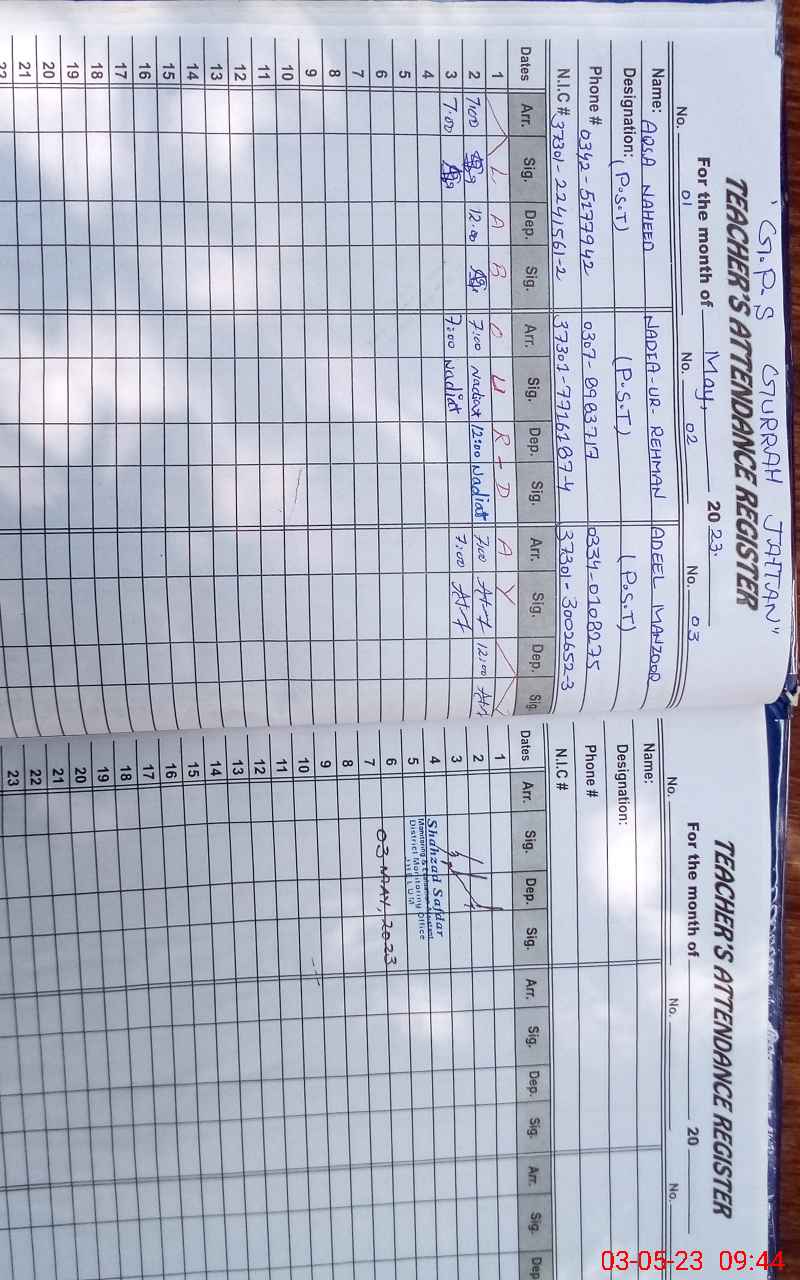 "G.P.S GURRAH JATTAN"
TEACHER'S ATTENDANCE REGISTER
For the month of May, 2023.
No. 01 No. 02 No. 03
Name: AQSA NAHEED NADIA-UR-REHMAN ADEEL MANZOOR
Designation: (P.S.T) (P.S.T) (P.S.T)
Phone # 0342-5177942 0307-8983717 0334-0108275
N.I.C # 37301-2241561-2 37301-7716187-4 37301-3002652-3
Dates Arr. Sig. Dep. Sig. Arr. Sig. Dep. Sig. Arr. Sig. Dep. Sig.
1 L A B O U R - D A Y
2 7:00 12:00 7:00 Nadiat 12:00 Nadiat 7:00 12:00
3 7:00 7:00 Nadiat 7:00
4
5
6
7
8
9
10
11
12
13
14
15
16
17
18
19
20
21
22
TEACHER'S ATTENDANCE REGISTER
For the month of 20
No. No. No.
Name:
Designation:
Phone #
N.I.C #
Dates Arr. Sig. Dep. Sig. Arr. Sig. Dep. Sig. Arr. Sig. Dep
1
2
3
4
5
6
7
8
9
10
11
12
13
14
15
16
17
18
19
20
21
22
23
Shahzad Safdar
Monitoring &
District Monitoring Office
JHELUM
03 MAY, 2023
03-05-23 09:44